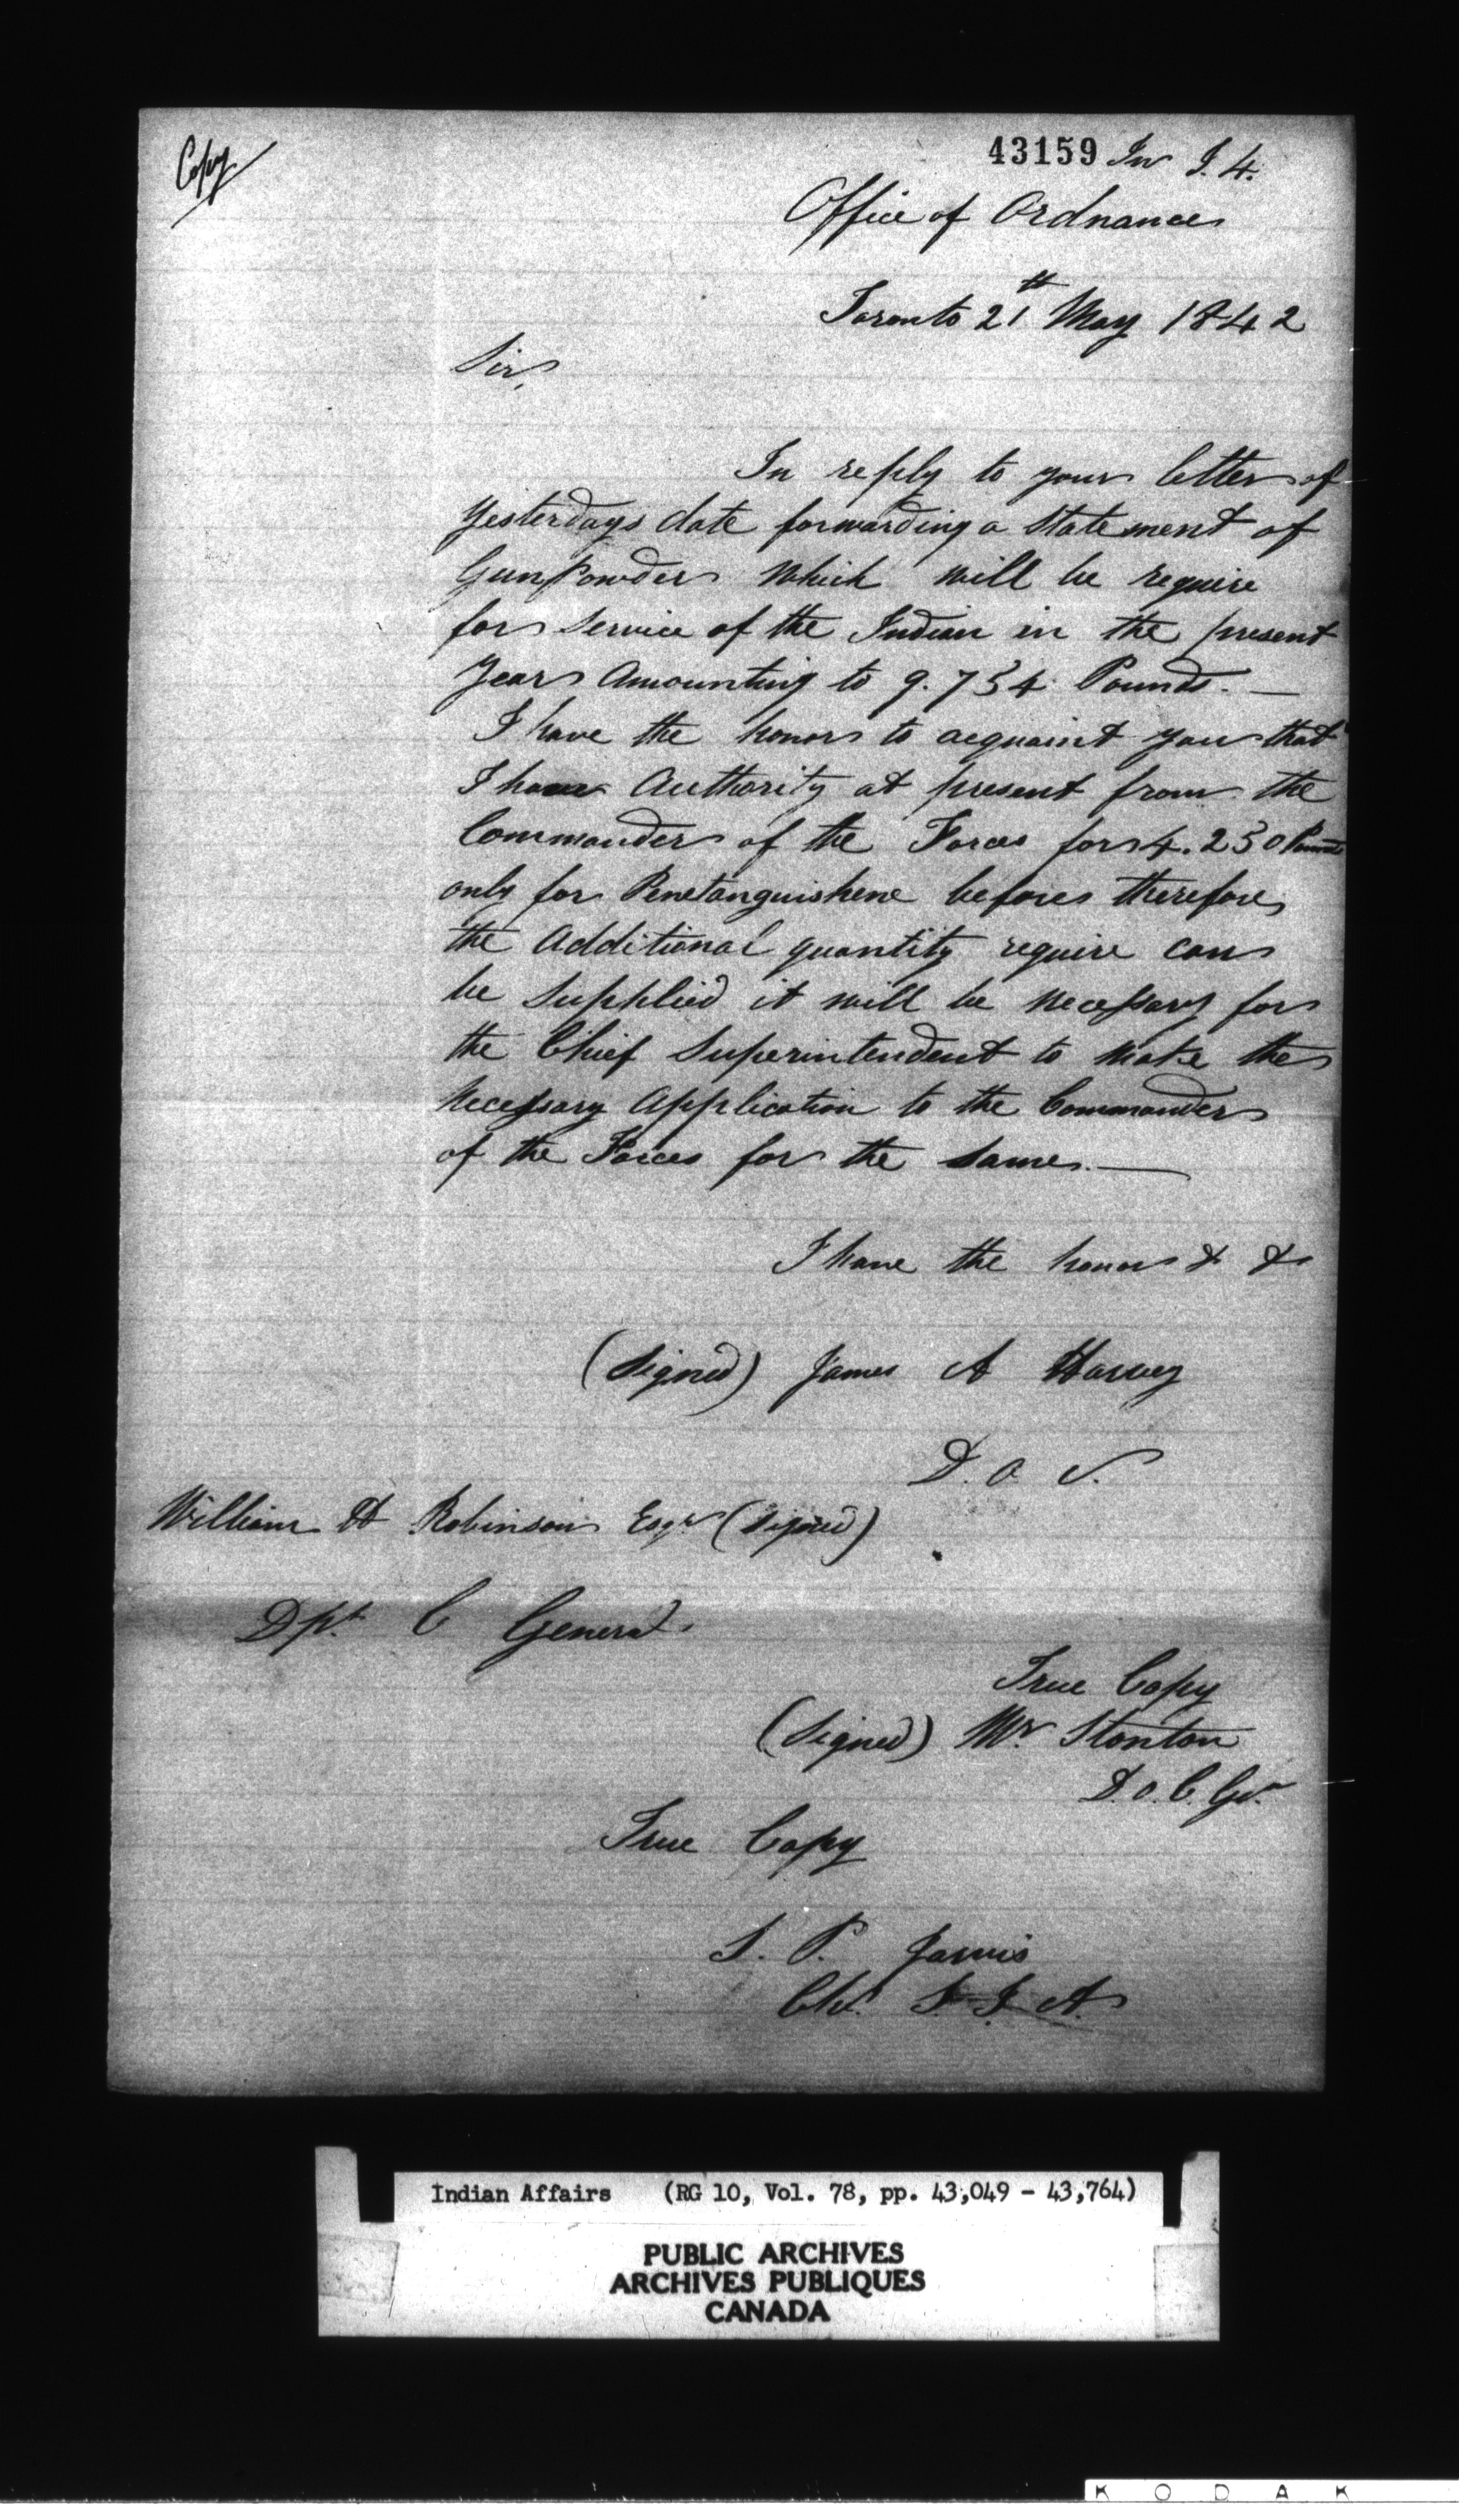 Copy
43159 In I. 4.
Office of Ordnance
Toronto 21th May 1842
Sir,
In reply to your letter of
Yesterdays date forwarding a Statement of
GunPowder Which will be require
for Service of the Indian in the present
Year Amounting to 9.754 Pounds. —
I have the honor to acquaint you that
I have Authority at present from the
Commander of the Forces for 4.250 Pounds
only for Penetanguishene before therefore
the Additional quantity require can
be Supplied it will be Necessary for
the Chief Superintendent to Make the
Necessary Application to the Commander
of the Forces for the Same. —
I have the honor & &
(Signed) James A Harvey
D. O. S.
William H Robinson Esqr (Signed)
Dpt. C General
True Copy
(Signed) Mr Stanton
D. O. C. Gr.
True Copy
S. P. Jarvis
Chf. S. I. A.
Indian Affairs (RG 10, Vol. 78, pp. 43,049 - 43,764)
PUBLIC ARCHIVES
ARCHIVES PUBLIQUES
CANADA
KODAK